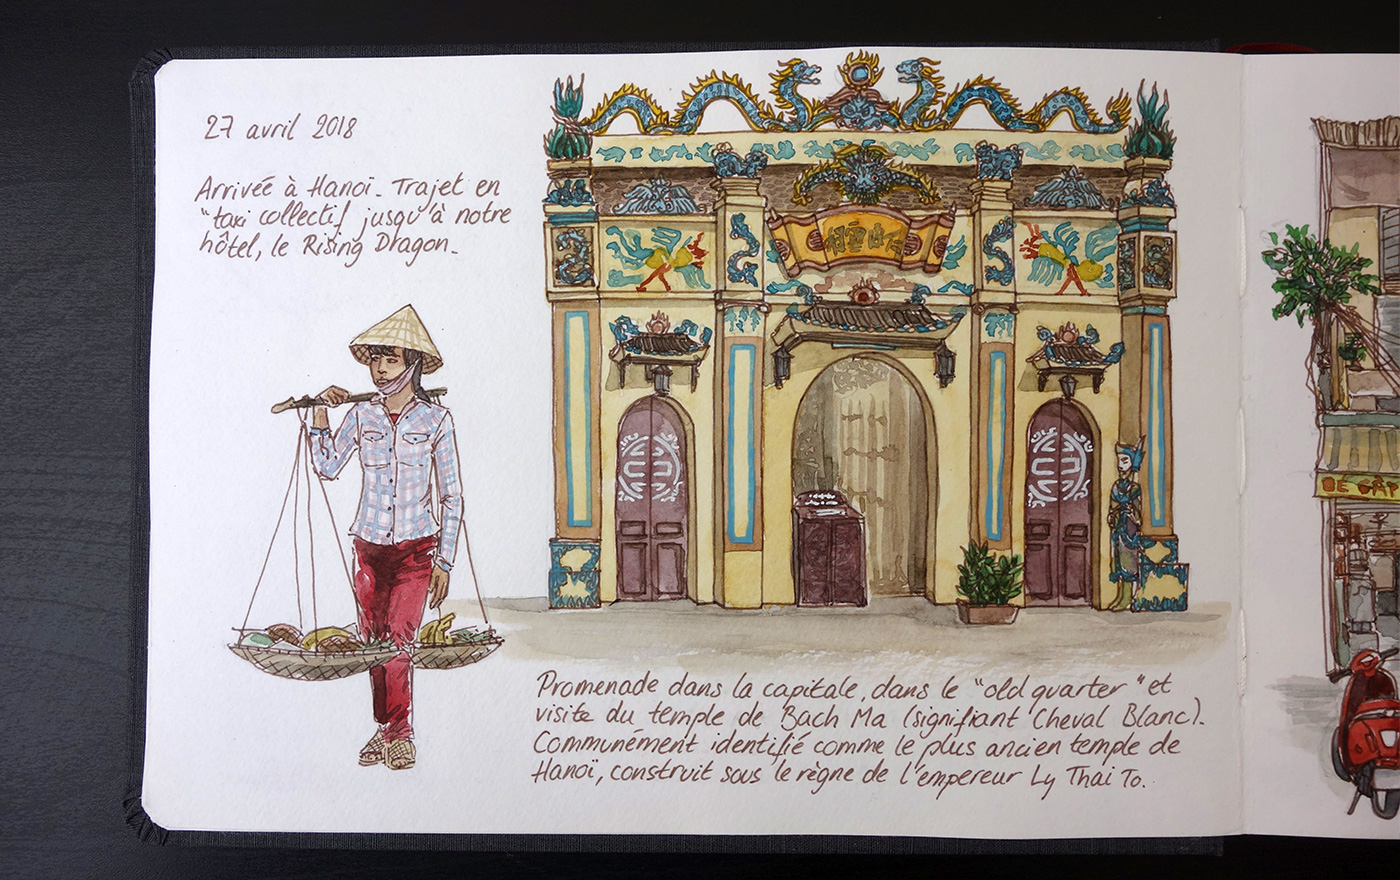 27 avril 2018
Arrivée à Hanoï. Trajet en
"taxi collectif jusqu'à notre
hôtel, le Rising Dragon.
Promenade dans la capitale, dans le "old quarter" et
visite du temple de Bach Ma (signifiant Cheval Blanc).
Communément identifié comme le plus ancien temple de
Hanoï, construit sous le règne de l'empereur Ly Thai To.